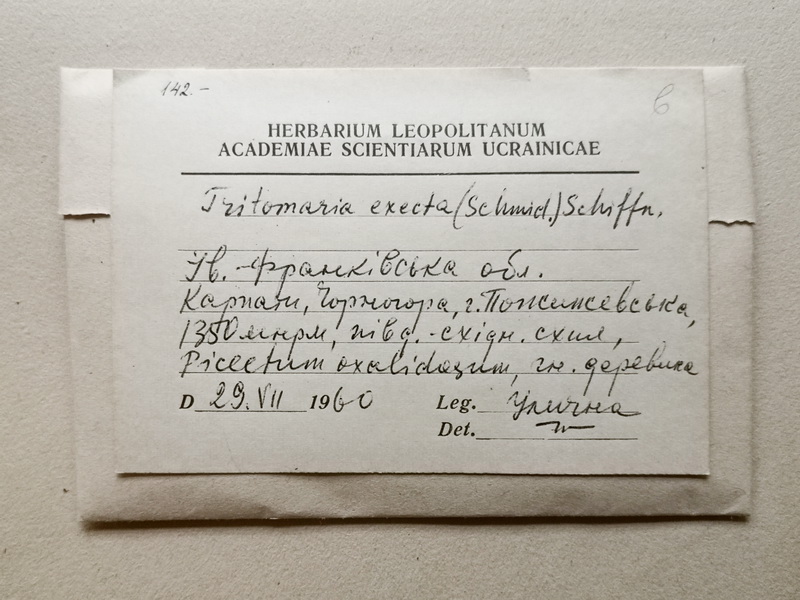 142.-
6
HERBARIUM LEOPOLITANUM
ACADEMIAE SCIENTIARUM UCRAINICAE
Tritomaria execta (Schmid.) Schiffn.
Ів.-Франківська обл.
Карпати, Чорногора, г. Пожижевська,
1350 м нрм, півд.-східн. схил,
Piceetum oxalidosum, гн. деревина
D 29.VII 1960 Leg. Улична
Det. -"-